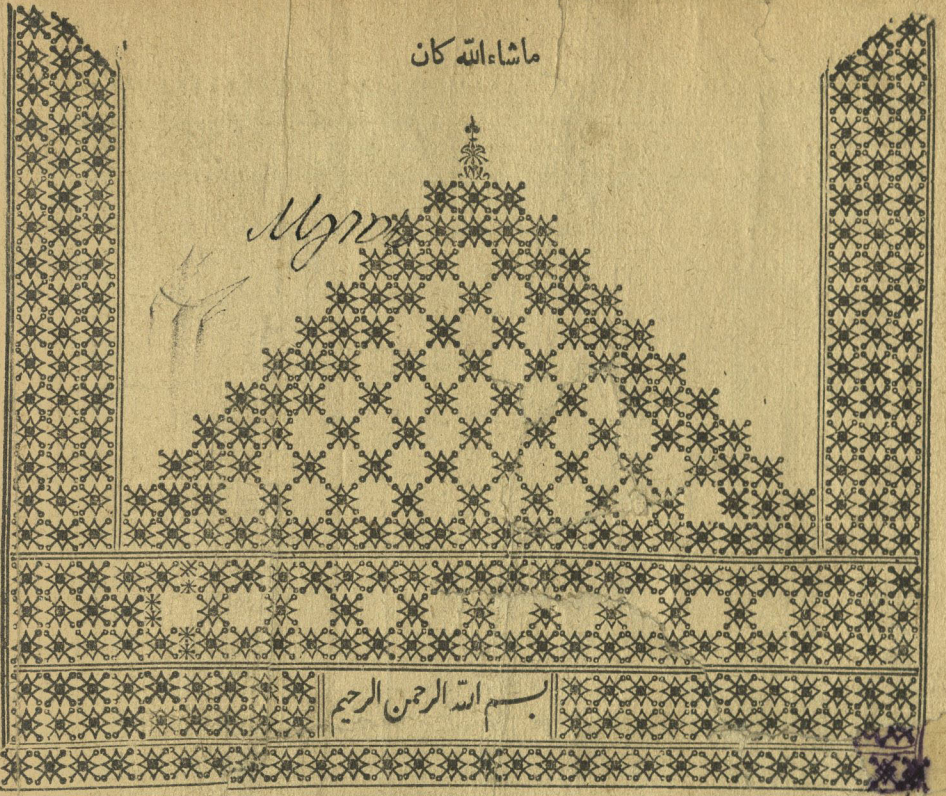 ماشاءالله كان
بسم الله الرحمن الرحيم